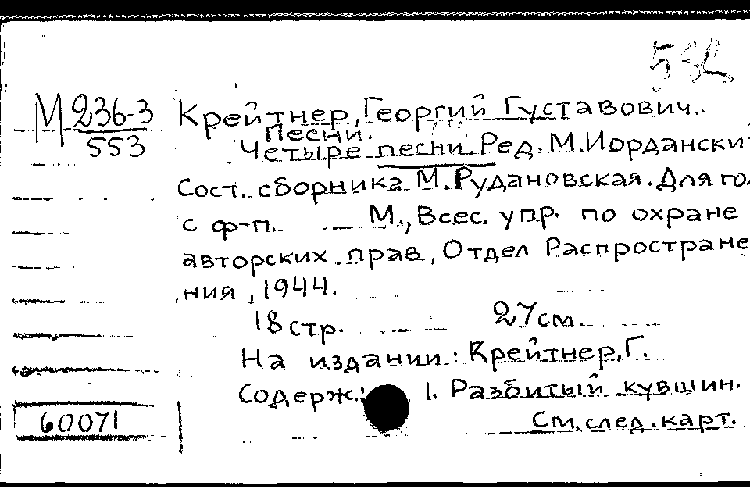 М 236-3
553
Крейтнер, Георгий Густавович.
Песни.
Четыре песни. Ред. М. Иордански
Сост. сборника М. Рудановская. Для го
с ф-п. М., Всес. упр. по охране
авторских прав, Отдел Распростране
ния, 1944.
18 стр. 27 см.
На издании: Крейтнер, Г.
Содерж.: 1. Разбитый кувшин.
См. след. карт.
60071